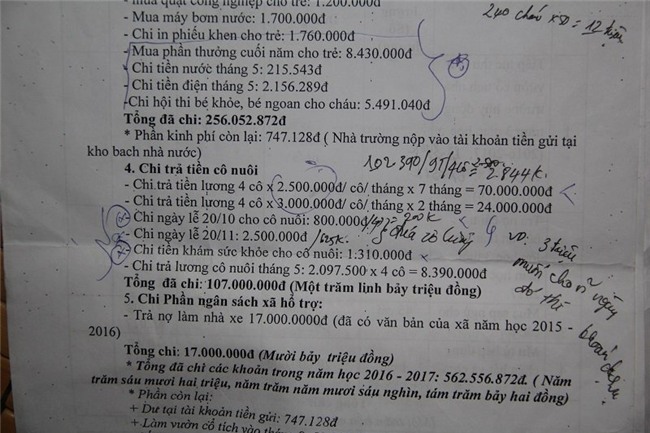 - mua quạt công nghiệp cho trẻ: 1.200.000đ
- Mua máy bơm nước: 1.700.000đ
- Chi in phiếu khen cho trẻ: 1.760.000đ
- Mua phần thưởng cuối năm cho trẻ: 8.430.000đ
- Chi tiền nước tháng 5: 215.543đ
- Chi tiền điện tháng 5: 2.156.289đ
-Chi hội thi bé khỏe, bé ngoan cho cháu: 5.491.040đ
Tổng đã chi: 256.052.872đ
* Phần kinh phí còn lại: 747.128đ ( Nhà trường nộp vào tài khoản tiền gửi tại
kho bach nhà nước)
4. Chi trả tiền cô nuôi
- Chi trả tiền lương 4 cô x 2.500.000đ/ cô/ tháng x 7 tháng = 70.000.000đ
- Chi trả tiền lương 4 cô x 3.000.000đ/ cô/ tháng x 2 tháng = 24.000.000đ
- Chi ngày lễ 20/10 cho cô nuôi: 800.000đ
- Chi ngày lễ 20/11: 2.500.000 /625k.
- Chi tiền khám sức khỏe cho cố nuôi: 1.310.000đ
- Chi trả lương cô nuôi tháng 5: 2.097.500 x 4 cô = 8.390.000đ
Tổng đã chi: 107.000.000đ (Một trăm linh bảy triệu đồng)
5. Chi Phần ngân sách xã hỗ trợ:
- Trả nợ làm nhà xe 17.000.0000đ (đã có văn bản của xã năm học 2015 -
2016)
Tổng chi: 17.000.000đ (Mười bảy triệu đồng)
* Tổng đã chi các khoản trong năm học 2016 - 2017: 562.556.872đ. ( Năm
trăm sáu mươi hai triệu, năm trăm năm mươi sáu nghìn, tám trăm bảy hai đồng)
* Phần còn lại:
+ Dư tại tài khoản tiền gửi: 747.128đ
+ Làm vườn cổ tích vào tháng
240 cháu x 50 = 12 triệu
= 2.844k.
= 200k
3 triệu